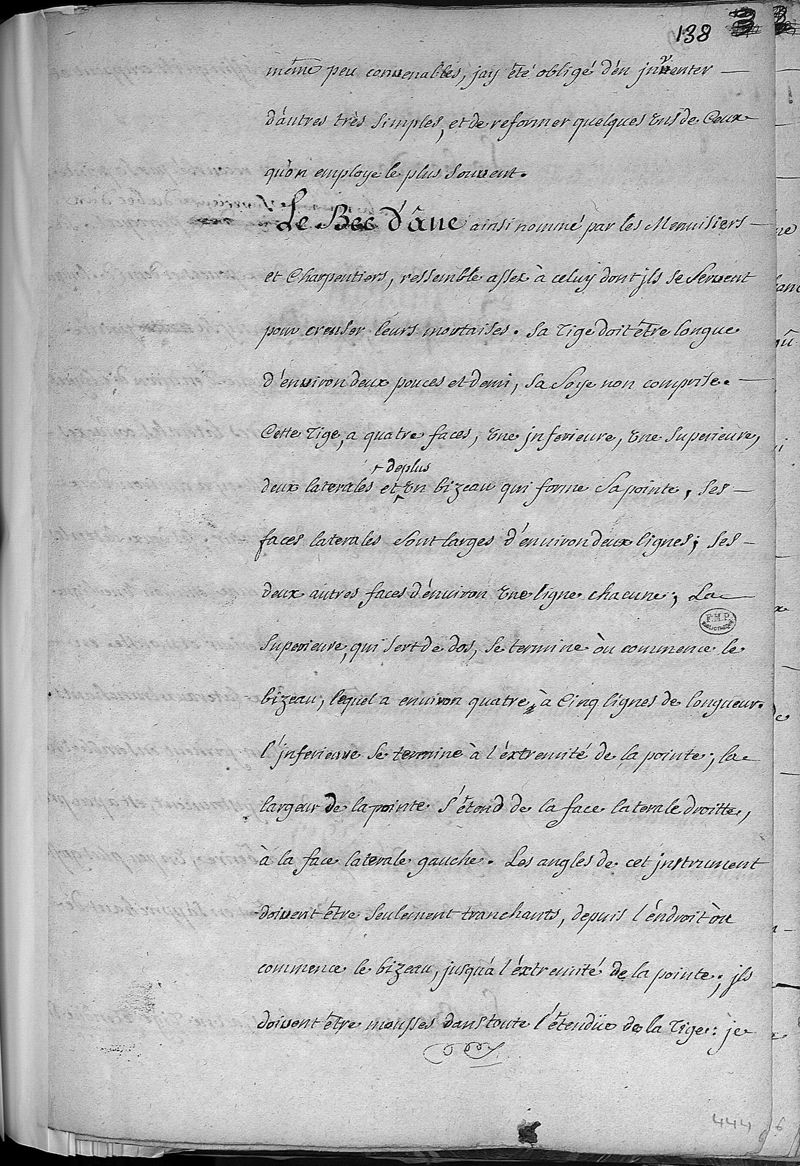 138
même peu convenables, jay été obligé d'en jnventer
d'autres très simples, et de reformer quelques uns de Ceux
qu'on employe le plus souvent.
Le Bec d'âne ainsi nommé par les Menuisiers
et Charpentiers, ressemble assez à celuy dont jls se servent
pour creuser leurs mortaises. Sa Tige doit être longue
d'environ deux pouces et demi, sa Soye non comprise.
Cette Tige, a quatre faces, une jnferieure, une superieure,
deplus
deux laterales et un bizeau qui forme sa pointe, ses
faces laterales sont larges d'environ deux lignes; ses
deux autres faces d'environ une ligne chacune; La
F.M.P.
superieure, qui sert de dos, se termine òu commence le
bizeau, lequel a environ quatre à Cinq lignes de longueur.
l'jnferieure se termine à l'éxtremité de la pointe; la
largeur de la pointe s'étend de la face laterale droitte,
à la face laterale gauche. Les angles de cet jnstrument
doivent être seulement tranchants, depuis l'éndroit òu
commence le bizeau, jusqu'à l'éxtremité de la pointe; jls
doivent être mousses dans toute l'étendüe de la Tige: je
444